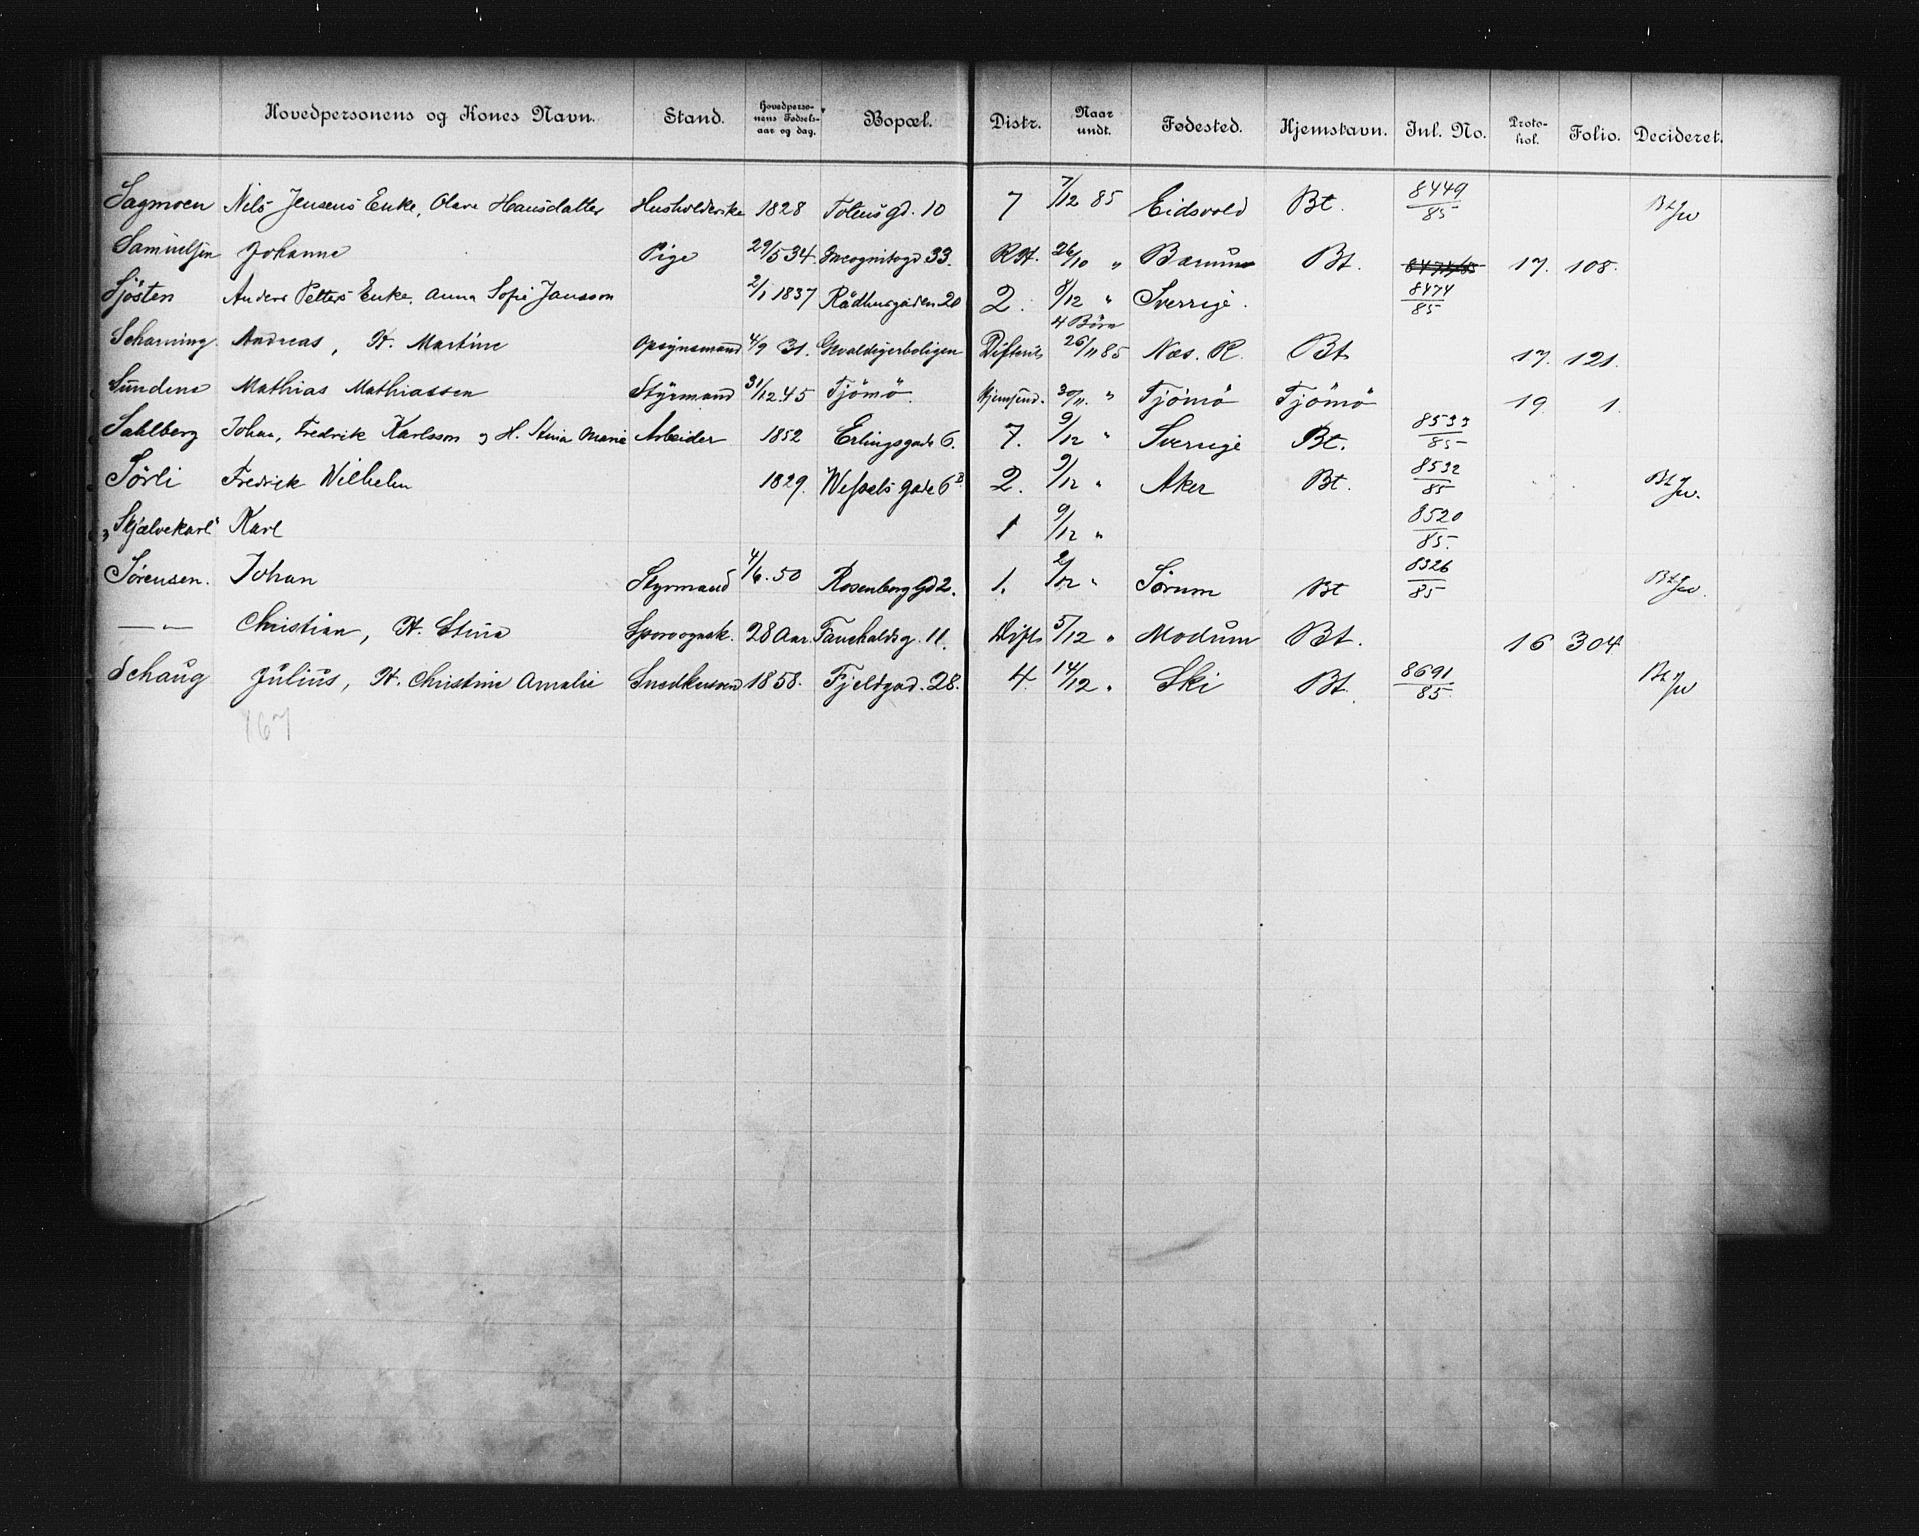 Hovedpersonens og Kones Navn. Stand. Hovedperso- nens Fødsels- aar og dag. Bopæl. Distr. Naar undt. Fødested. Hjemstavn. Jnl. No. Proto- kol. Folio. Decideret.
Sagmoen Nils Jensens Enke, Olave Hansdatter Husholderske 1828 Totensgd. 10 7 7/12 85 Eidsvold Bt. 8449/85 Bt
Samuelsen Johanne Pige 29/5 34. Incognitogd 33. RH. 26/10 " Bærum Bt. 8474/85 17. 108.
Sjösten Anders Petters Enke, Anna Sofie Jansson 2/1 1837 Rådhusgaden 20 2. 8/12 " Sverrige. 8474/85
4 Börn
Scharning Andreas, H. Martine Opsynsmand 4/9 31. Gevaldigerboligen Difterits 26/11 85 Næs. R. Bt 17. 121.
Sundene Mathias Mathiassen Styrmand 31/12.45 Tjömö. Hjemsend. 30/11. " Tjömö Tjömö 19. 1.
Sahlberg Johan, Fredrik Karlsson og H. Stina Marie Arbeider 1852 Erlingsgade 6. 7. 9/12 " Sverrige Bt. 8533/85
Sörli Fredrick Wilhelm 1829. Wessels gade 6B 2. 9/12 " Aker Bt. 8532/85 Bt
"Skjælvekarl" Karl 1 9/12 " 8520/85.
Sörensen. Johan Styrmand 4/6. 50 Rosenborg Gd 2. 1. 2/12 " Sörum Bt 8326/85 Bt
— " — Christian, H. Stina Sporvognsk. 28 Aar. Fauchaldsg. 11. Difts 5/12 " Modum Bt. 16 304
Schaug Julius, H. Christine Amalie Snedkersvend 1858. Fjeldgad. 28. 4. 14/12 " Ski Bt. 8691/85 Bt
167